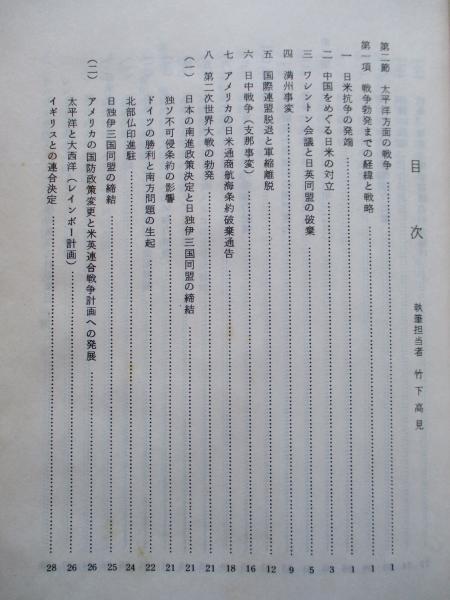 目次
執筆担当者 竹下高見
第二節 太平洋方面の戦争……1
第一項 戦争勃発までの経緯と戦略……1
一 日米抗争の発端……1
二 中国をめぐる日米の対立……3
三 ワシントン会議と日英同盟の破棄……5
四 満州事変……9
五 国際連盟脱退と軍縮離脱……12
六 日中戦争(支那事変)……16
七 アメリカの日米通商航海条約破棄通告……18
八 第二次世界大戦の勃発……21
(一) 日本の南進政策決定と日独伊三国同盟の締結……21
独ソ不可侵条約の影響……21
ドイツの勝利と南方問題の生起……22
北部仏印進駐……24
日独伊三国同盟の締結……25
(二) アメリカの国防政策変更と米英連合戦争計画への発展……26
太平洋と大西洋(レインボー計画)……26
イギリスとの連合決定……28